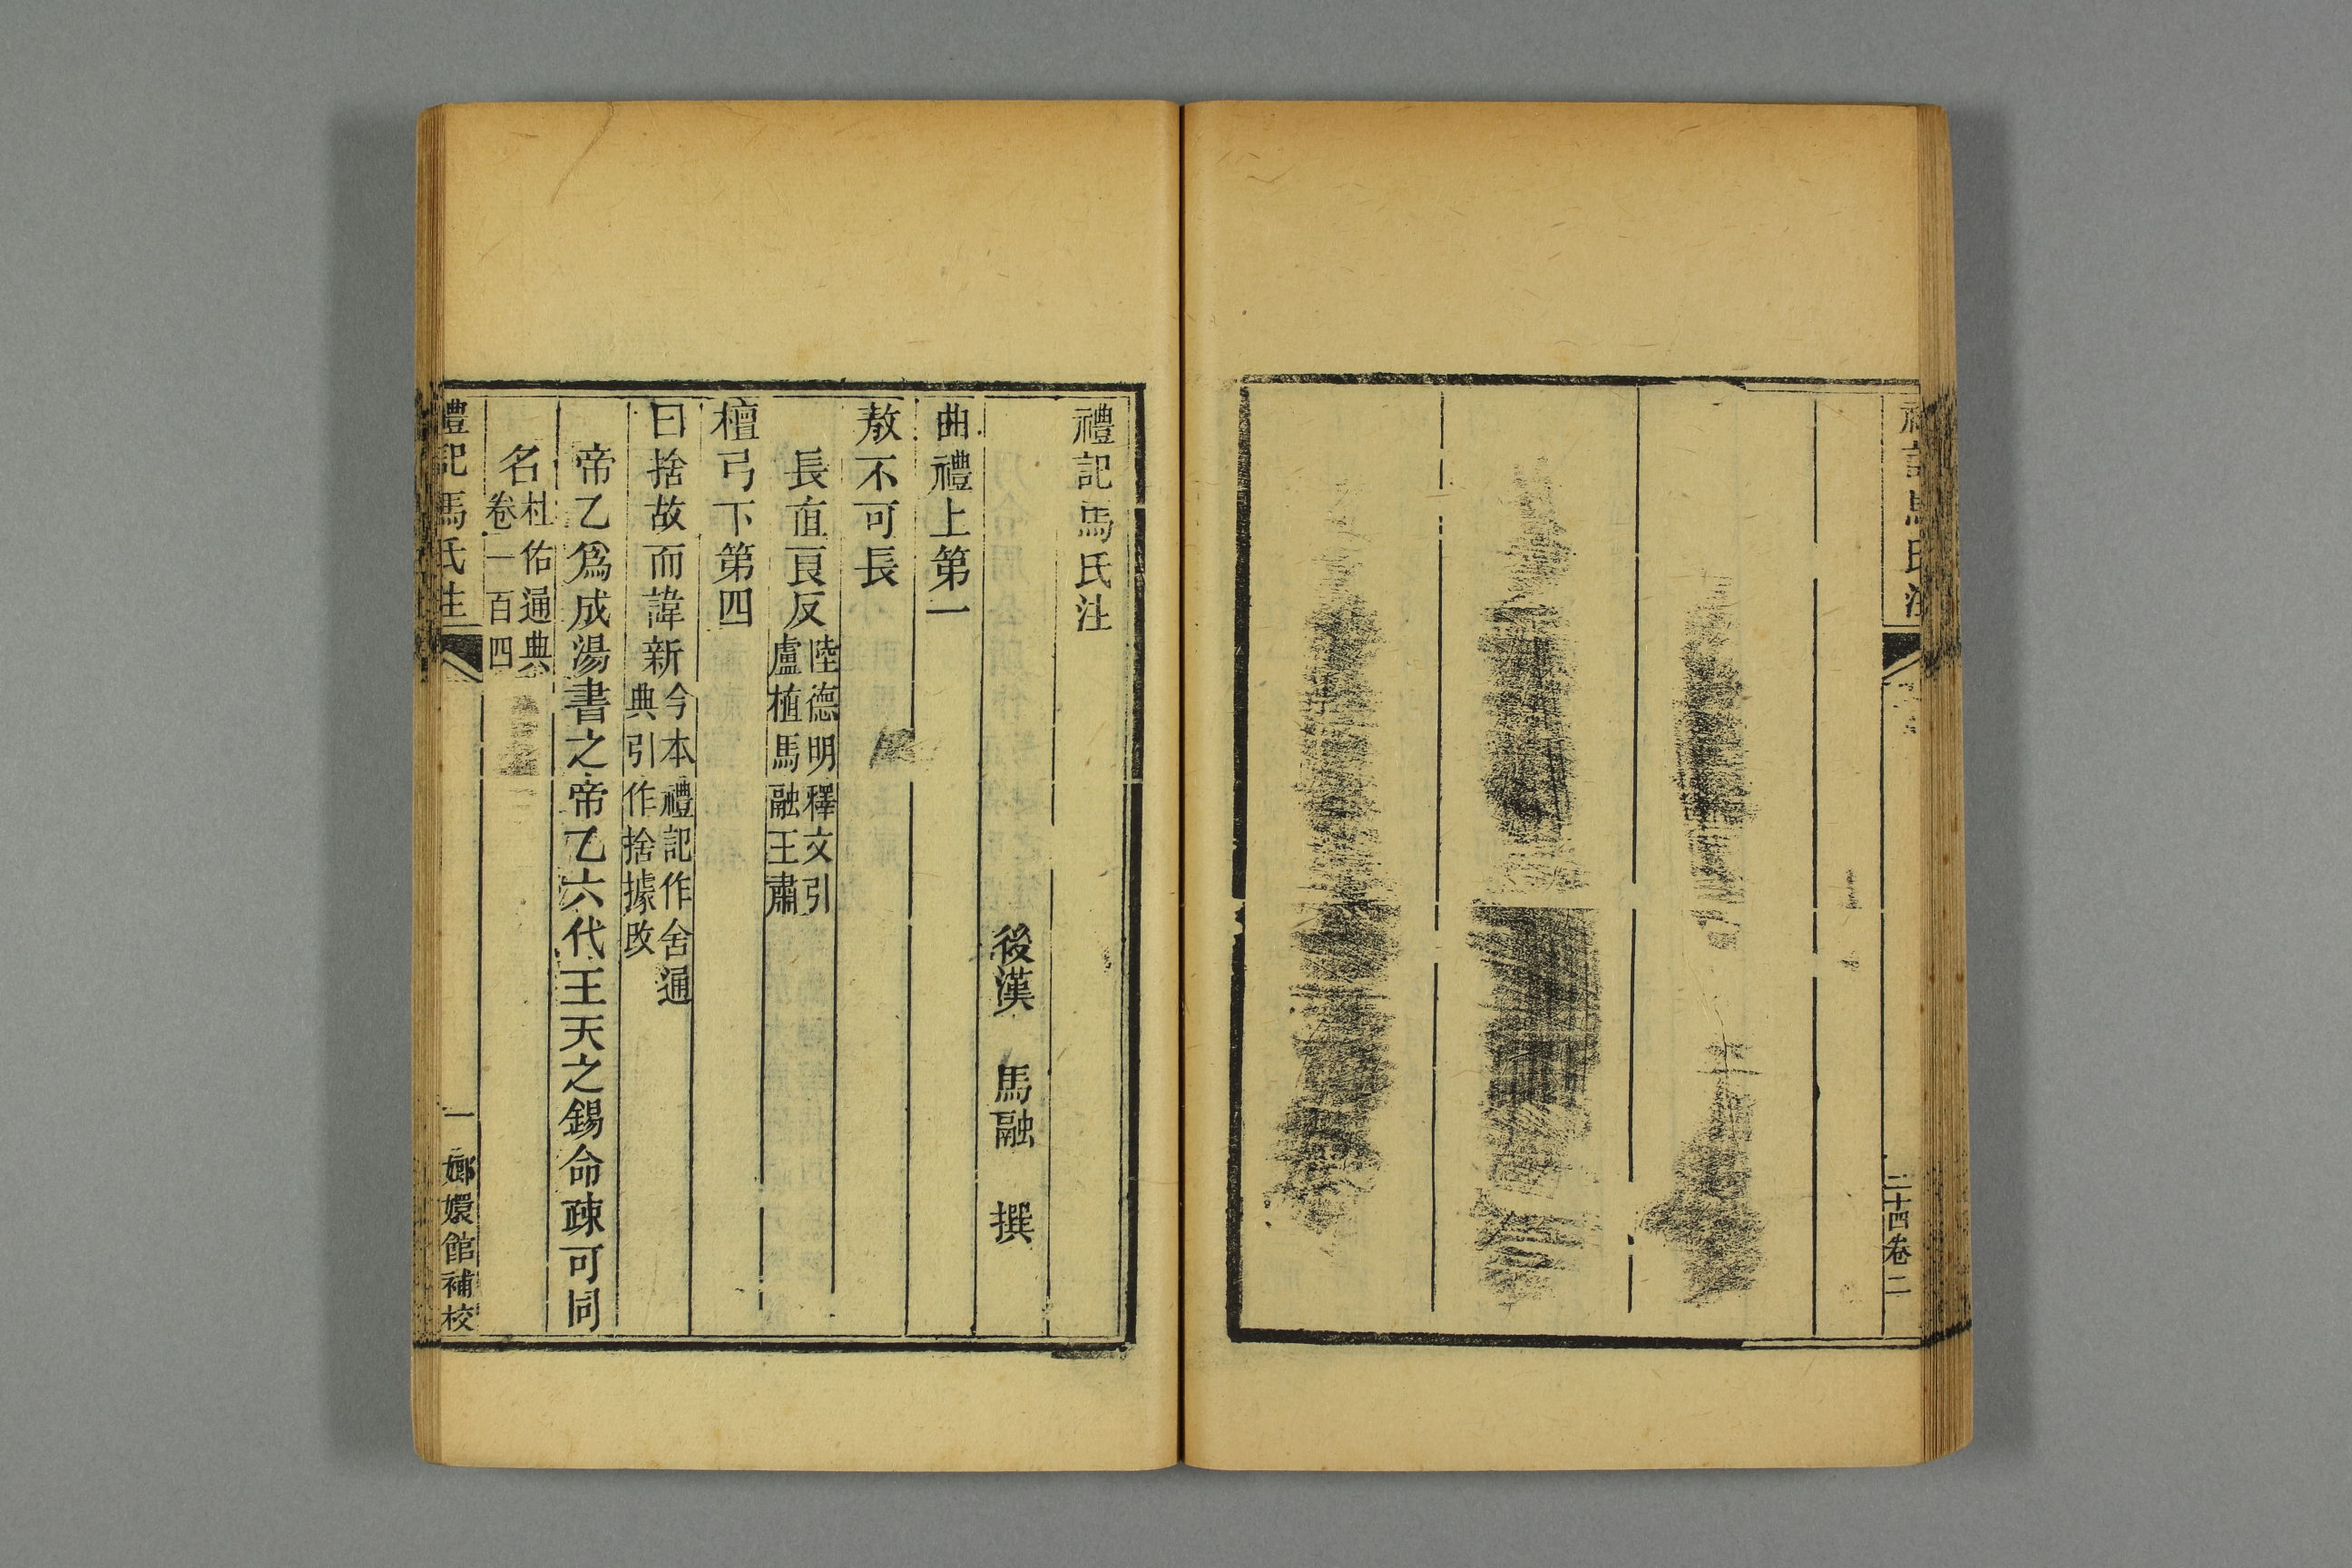 禮記馬氏注
三十四卷二
禮記馬氏注
後漢　馬融　撰
曲禮上第一
敖不可長
長直良反陸德明釋文引盧植馬融王肅
檀弓下第四
曰捨故而諱新今本禮記作舍通典引作捨據改
帝乙爲成湯書之帝乙六代王天之錫命疎可同
名杜佑通典卷一百四
禮記馬氏注
一
嫏嬛館補校